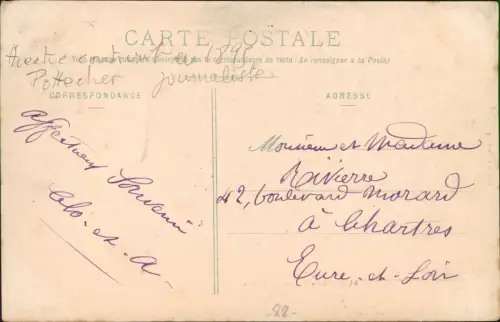 CARTE POSTALE
Théâtre construit en 1895
Pottecher journaliste
(Se renseigner à la Poste)
CORRESPONDANCE
ADRESSE
Affectueux Souvenir
Clo. et. A.
Monsieur et Madame
Rivierre
42, boulevard Morard
à Chartres
Eure-et-Loir
-88-